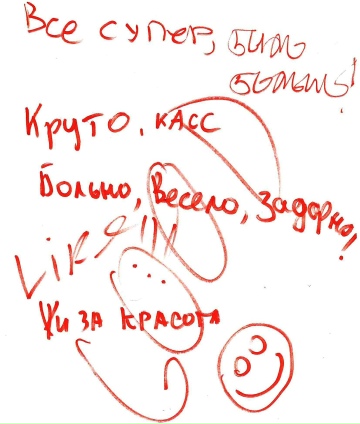 Все супер,
Круто, КАСС
Больно, Весело, Задорно!
LIKE!!!
ЗА КРАСОТА